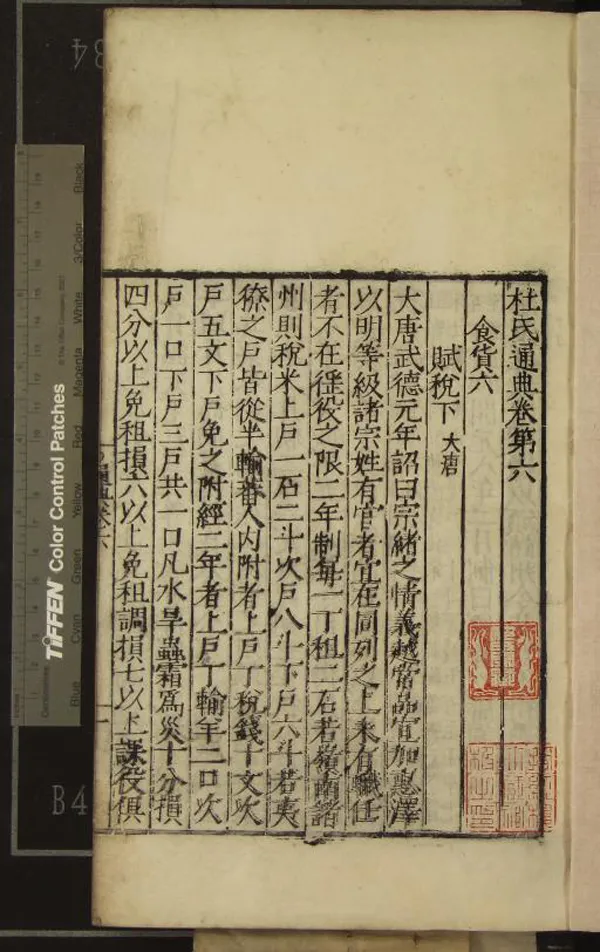 杜氏通典卷第六
食貨六
賦稅下 大唐
大唐武德元年詔曰宗緒之情義越常品宜加惠澤
以明等級諸宗姓有官者宜在同列之上未有職任
者不在徭役之限二年制每一丁租二石若嶺南諸
州則稅米上戶一石二斗次戶八斗下戶六斗若夷
獠之戶皆從半輸蕃人內附者上戶丁稅錢十文次
戶五文下戶免之附經二年者上戶丁輸羊二口次
戶一口下戶三戶共一口凡水旱蟲霜爲災十分損
四分以上免租損六以上免租調損七以上課役俱
TIFFEN Color Control Patches
Blue
Cyan
Green
Yellow
Red
Magenta
White
3/Color
Black
B4
B4